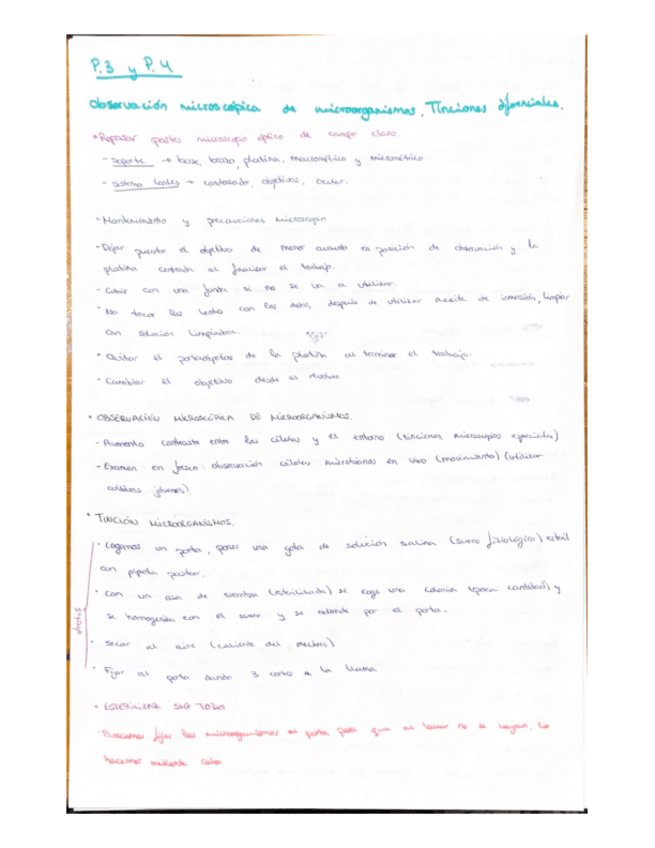 P.3 y P.4
Observación microscópica de microorganismos. Tinciones diferenciales.
• Repasar partes microscopio óptico de campo claro.
- Soporte → base, brazo, platina, macrométrico y micrométrico
- Sistema lentes → condensador, objetivos, ocular.
• Mantenimiento y precauciones microscopio
- Dejar puesto el objetivo de menor aumento en posición de observación y la
platina centrada al finalizar el trabajo.
- Cubrir con una funda si no se va a utilizar.
• No tocar las lentes con los dedos, después de utilizar aceite de inmersión, limpiar
con solución limpiadora.
• Quitar el portaobjetos de la platina al terminar el trabajo.
- Cambiar el objetivo desde el revólver.
• OBSERVACIÓN MICROSCÓPICA DE MICROORGANISMOS.
- Aumento contraste entre las células y el entorno (tinciones, microscopios especiales)
- Examen en fresco: observación células microbianas en vivo (movimiento) (utilizar
cultivos jóvenes)
• TINCIÓN MICROORGANISMOS.
• Cogemos un porta, poner una gota de solución salina (suero fisiológico) estéril
con pipeta pasteur.
• Con un asa de siembra (esterilizada) se coge una colonia (poca cantidad) y
se homogeniza con el suero y se extiende por el porta.
• Secar al aire (caliente del mechero)
• Fijar al porta dando 3 cortes a la llama
frotis
• ESTERILIZAR TODO
- Buscamos fijar los microorganismos al porta para que al lavar no se vayan. Lo
hacemos mediante calor